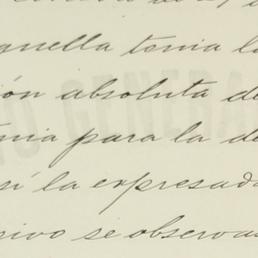 aquella tenia la
ión absoluta de
enia para la de
sí la expresada
sivo se observa